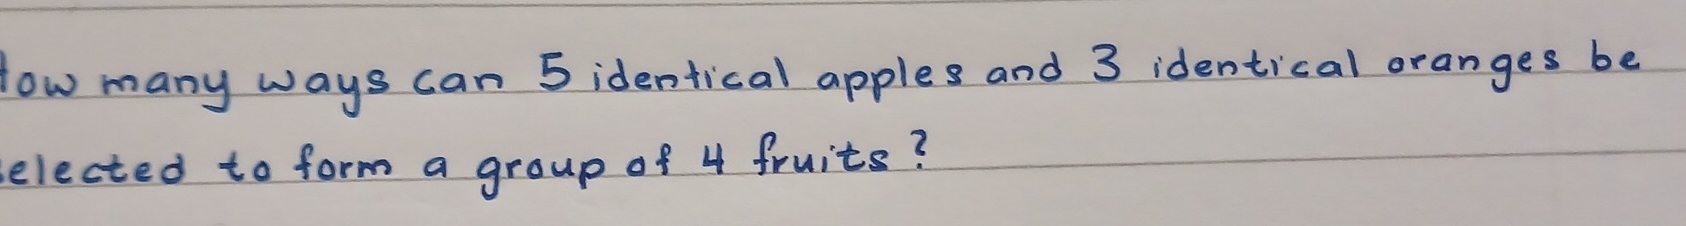 How many ways can 5 identical apples and 3 identical oranges be
selected to form a group of 4 fruits?